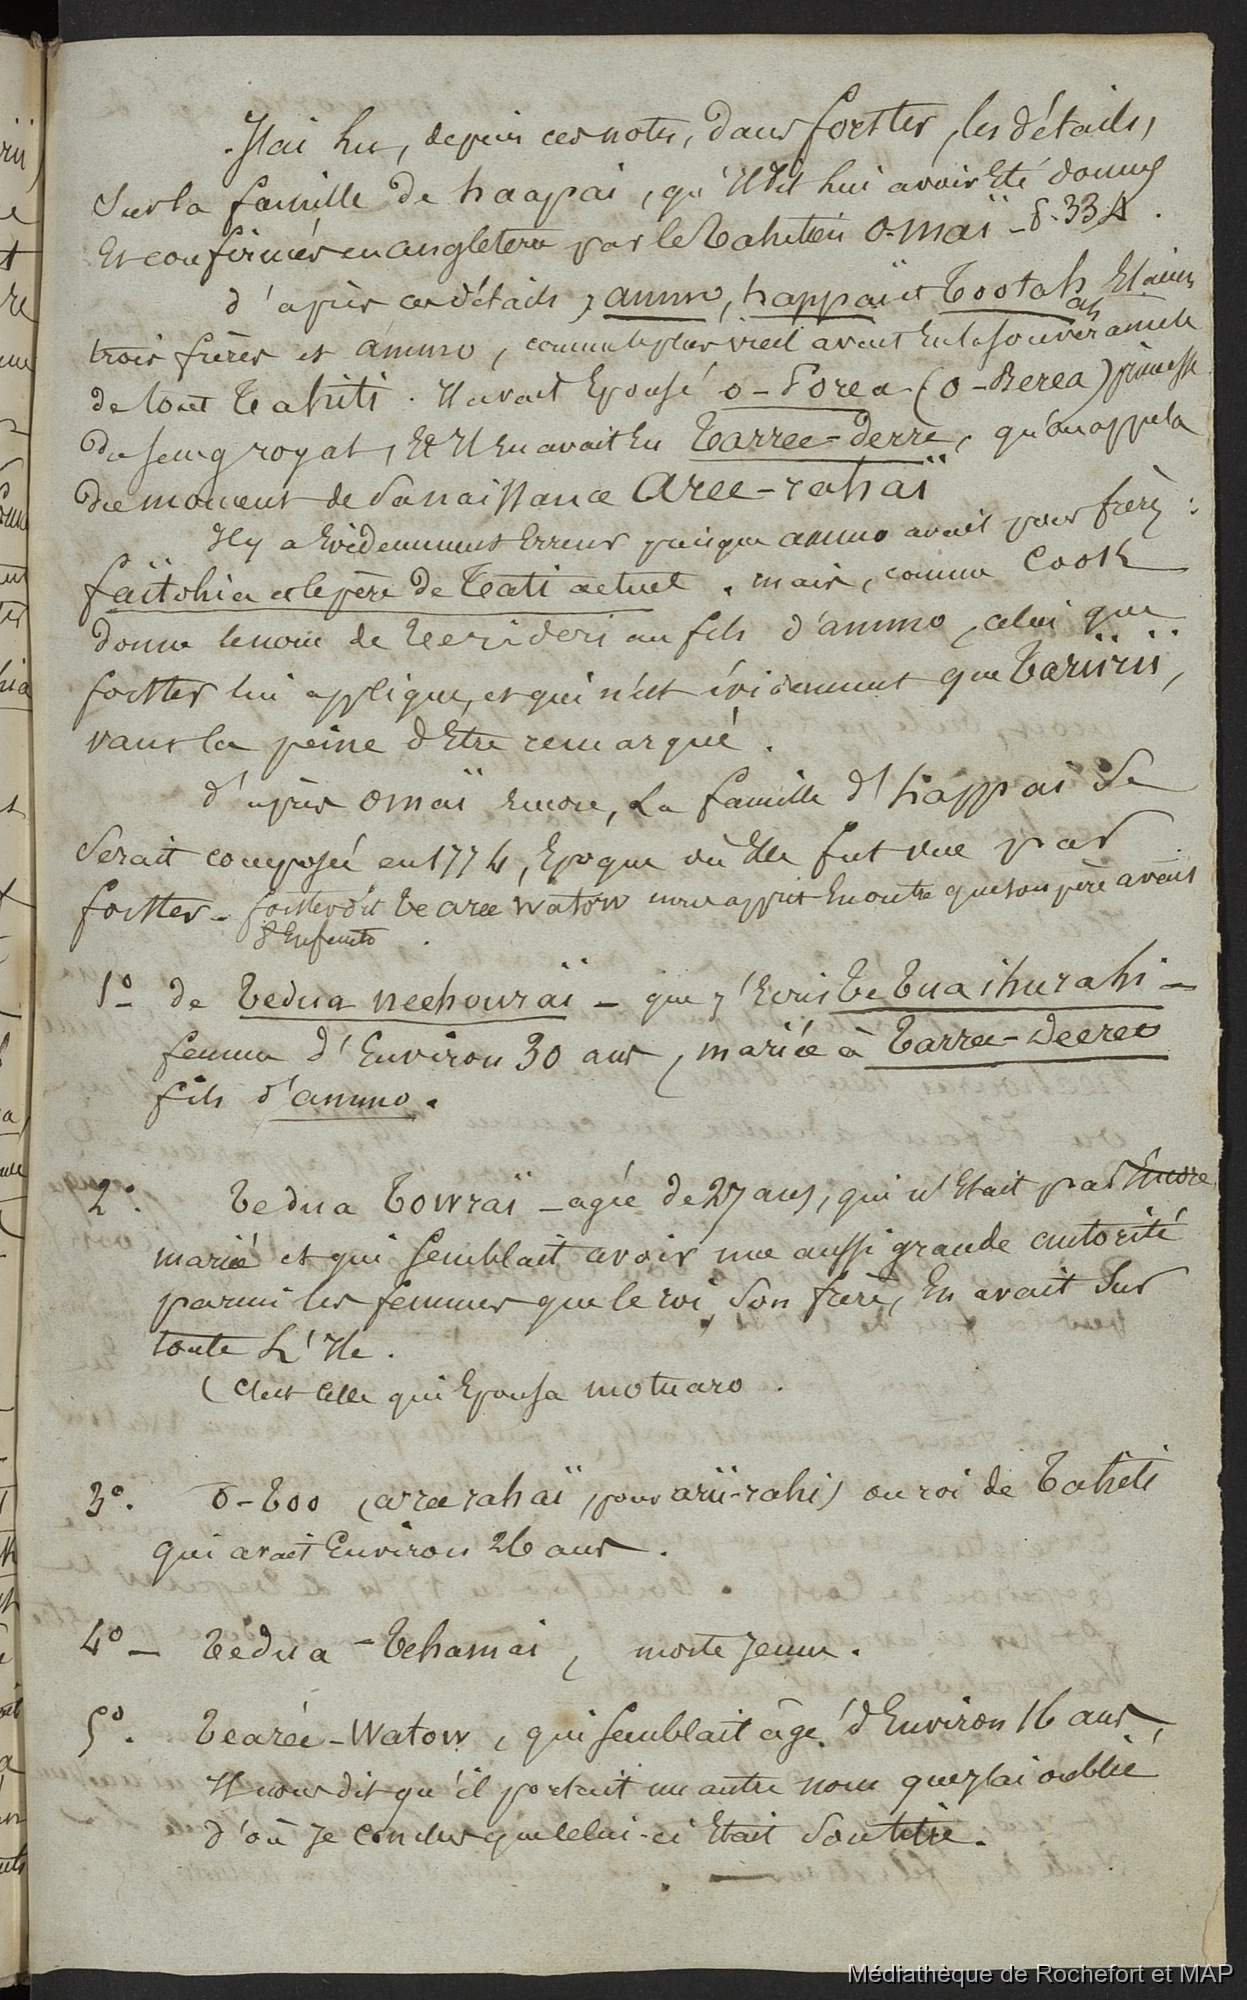 J'ai lu, depuis ces notes, dans forster, les détails,
sur la famille de haapai, qu'il dit lui avoir été donnés
et confirmés en angleterre par le tahitien O-maï - p. 334.
d'après ces détails, ammo, happaï et Tootahah étaient
trois frères et ammo, comme le plus vieil avait eu la souveraineté
de tout Tahiti. Il avait Epousé o-Porea (o-Berea) princesse
du sang royal, et il en avait eu Tarree-derre, qu'on appela
du moment de sa naissance Aree-rahaï
Il y a Evidemment Erreur puisque ammo avait pour frère :
faïtohia et le père de Tati actuel. mais, comme Cook
donne le nom de Teerideri au fils d'ammo, celui que
forster lui applique, et qui n'est évidemment que Tariirii,
vaut la peine d'Etre remarqué.
d'après omaï encore, La famille d'happai se
serait composée en 1774, Epoque où Elle fut vue par
forster - forster dit Te aree Watow nous apprit En outre que son père avait
8 Enfants.
1º de Tedua neehouraï - que j'Ecris Te Tua ihurahi -
femme d'Environ 30 ans, mariée à Tarree-Deeree
fils d'ammo.
2º. Tedua Towraï - agée de 27 ans, qui n'Etait pas Encore
mariée et qui semblait avoir une aussi grande autorité
parmi les femmes que le roi, son frère, En avait Sur
toute L'Ile.
(C'est celle qui Epousa motuaro.
3º. O-Too (aree rahaï, pour arii-rahi) ou roi de Tahiti
qui avait Environ 26 ans.
4º - Tédua - Tehamai, morte Jeune.
5º. Tearée-Watow, qui semblait âgé d'Environ 16 ans,
Il nous dit qu'il portait un autre nom que j'ai oublié
d'où Je conclus que celui-ci Etait son titre.
Médiathèque de Rochefort et MAP